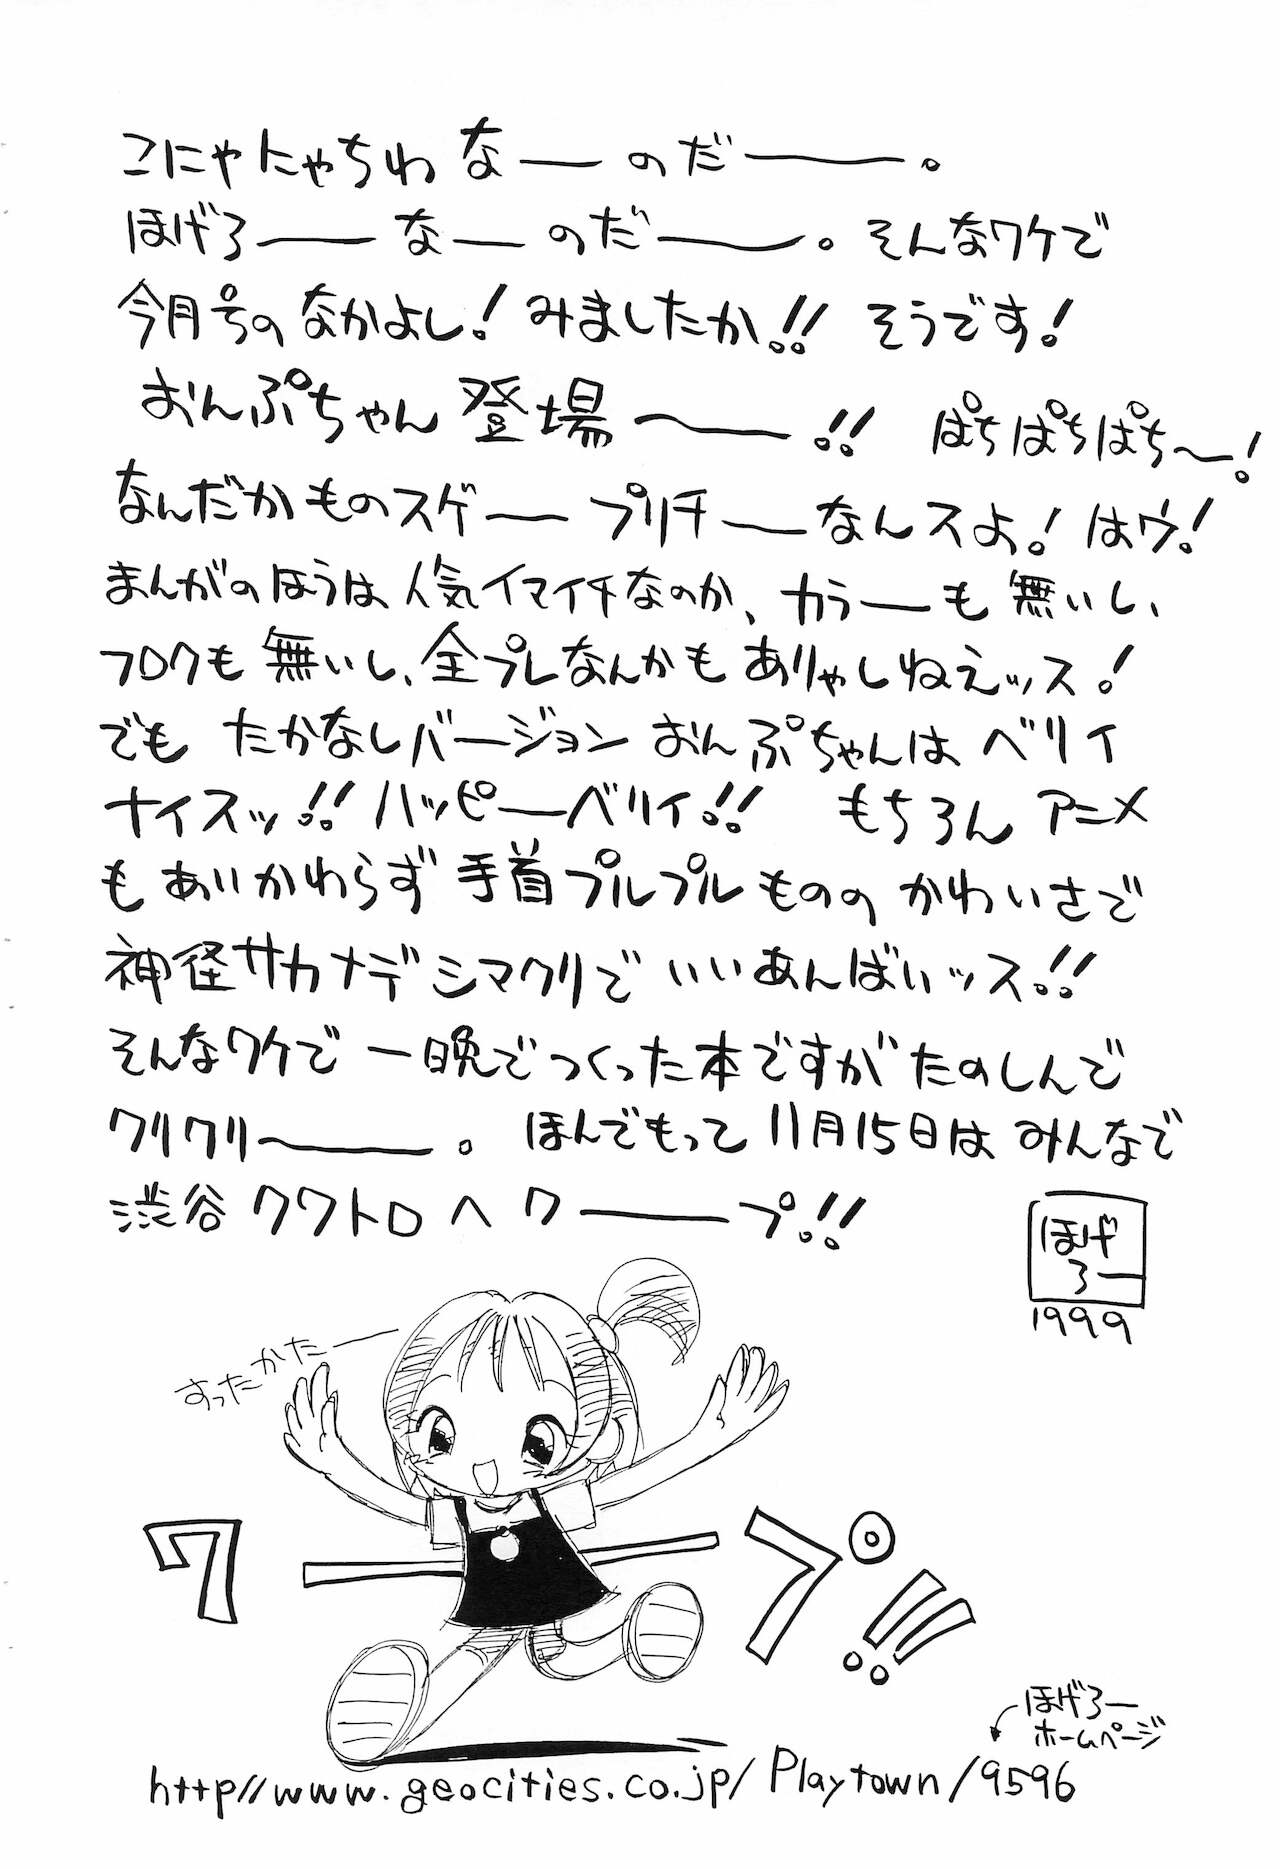 こにゃにゃちわ なーのだー。
ほげろー なーのだー。 そんなワケで
今月号の なかよし! みましたか!! そうです!
おんぷちゃん 登場ー!! ぱちぱちぱち〜!
なんだか ものスゲー プリチーなんスよ! はウ!
まんがのほうは 人気イマイチなのか、カラーも 無いし、
フロクも 無いし、全プレなんかも ありゃしねえッス!
でも たかなしバージョン おんぷちゃんは ベリイ
ナイスッ!! ハッピーベリィ!! もちろん アニメ
も あいかわらず 手首プルプルものの かわいさで
神径サカナデ シマクリで いいあんばいッス!!
そんなワケで 一晩でつくった本ですが たのしんで
クリクリー。 ほんでもって 11月15日は みんなで
渋谷 クワトロ へ ワープ!!
ほげ
ろー
1999
すったかたー
ワープ!!!
ほげろー
ホームページ
http//www.geocities.co.jp/Playtown/9596